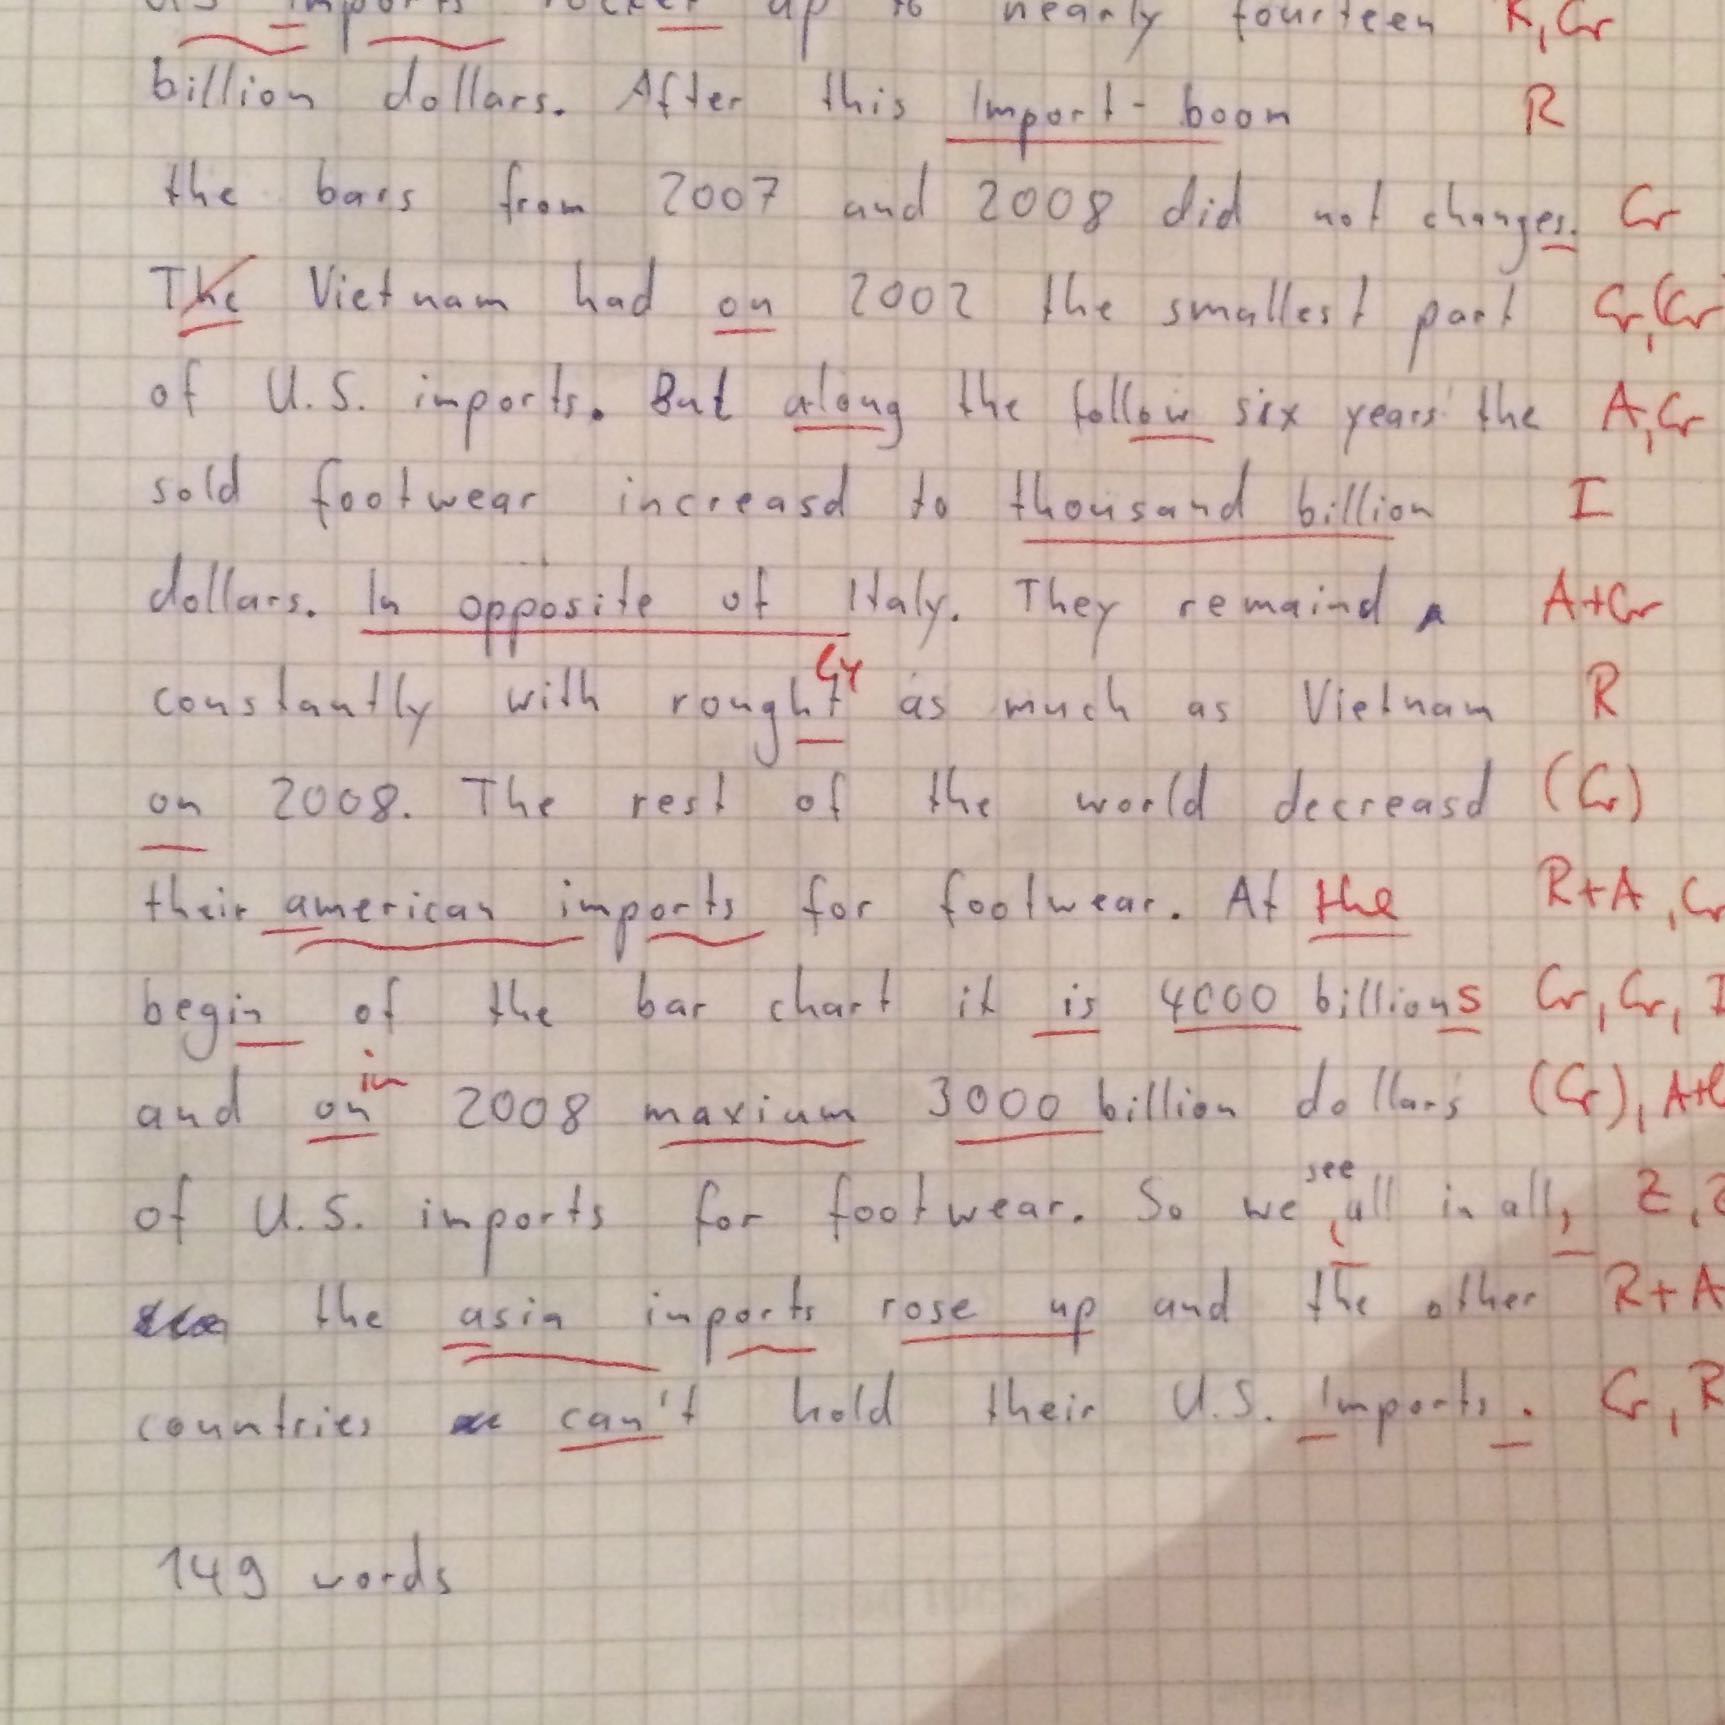 imports up to nearly fourteen R, Gr
billion dollars. After this Import-boom R
the bars from 2007 and 2008 did not changes. Gr
The Vietnam had on 2002 the smallest part Gr, (Gr
of U.S. imports. But along the follow six years the A, Gr
sold footwear increasd to thousand billion I
dollars. In opposite of Italy. They remaind A+Gr
Gr
constantly with rought as much as Vietnam R
on 2008. The rest of the world decreasd (Gr)
their american imports for footwear. At the R+A, Gr
begin of the bar chart it is 4000 billions Gr, Gr, I
in
and on 2008 maxium 3000 billion dollars (Gr), A+
see
of U.S. imports for footwear. So we, all in all, Z, Z
the asia imports rose up and the other R+A
countries can't hold their U.S. Imports. Gr, R
149 words